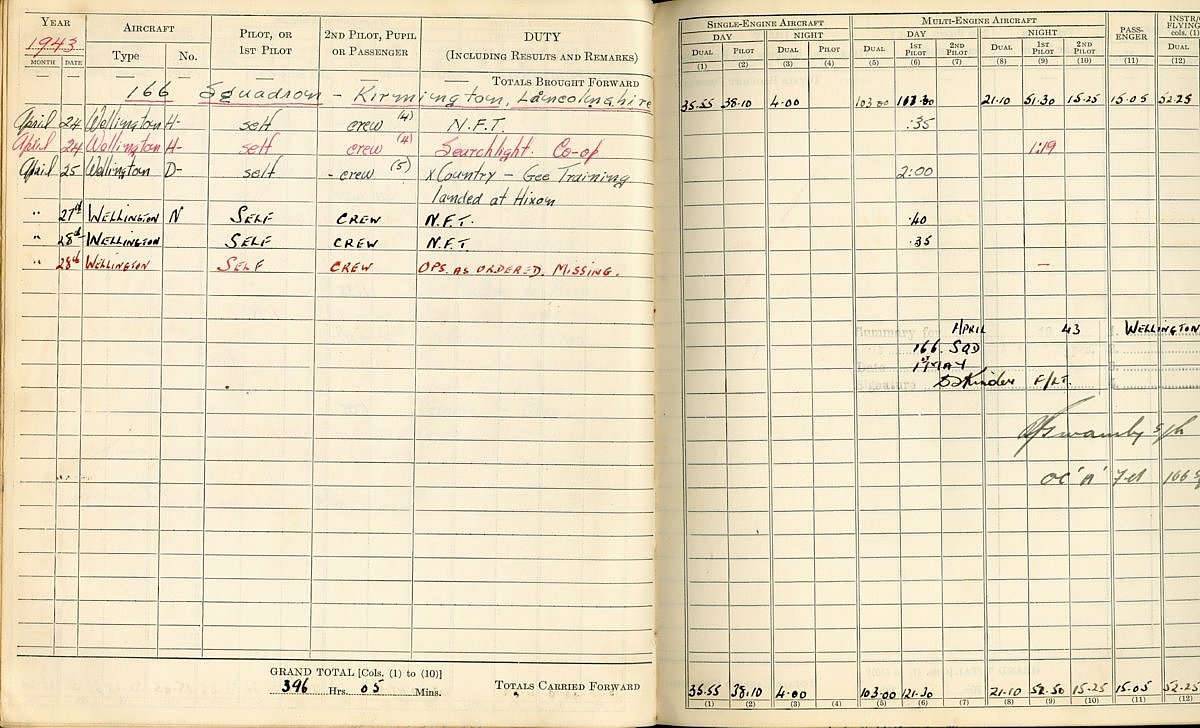 YEAR 1943 AIRCRAFT PILOT, OR 1ST PILOT 2ND PILOT, PUPIL OR PASSENGER DUTY (INCLUDING RESULTS AND REMARKS)
MONTH DATE Type No.
— — — — — — TOTALS BROUGHT FORWARD
166 Squadron - Kirmington, Lincolnshire
April 24 Wellington H- self crew (4) N.F.T.
April 24 Wellington H- self crew (4) Searchlight. Co-op
April 25 Wellington D- self - crew (5) x Country - Gee Training
landed at Hixon
" 27th WELLINGTON N SELF CREW N.F.T.
" 28th WELLINGTON SELF CREW N.F.T.
" 28th WELLINGTON SELF CREW OPS. AS ORDERED. MISSING.
GRAND TOTAL [Cols. (1) to (10)]
396 Hrs. 05 Mins.
TOTALS CARRIED FORWARD
SINGLE-ENGINE AIRCRAFT MULTI-ENGINE AIRCRAFT PASS-ENGER INSTR/ FLYING cols. (1)
DAY NIGHT DAY NIGHT
DUAL PILOT DUAL PILOT DUAL 1ST PILOT 2ND PILOT DUAL 1ST PILOT 2ND PILOT DUAL
(1) (2) (3) (4) (5) (6) (7) (8) (9) (10) (11) (12)
35.55 38.10 4.00 103.00 21.10 51.30 15.25 15.05 52.25
:35
1:19
2:00
.40
.35
—
Summary for APRIL 19 43 1. WELLINGTON
166. SQD 2.
Date 1st MAY 3.
Signature F/LT. 4.
OC 'A' 166
35.55 38.10 4.00 103.00 121.30 21.10 52.50 15.25 15.05 52.25
(1) (2) (3) (4) (5) (6) (7) (8) (9) (10) (11) (12)